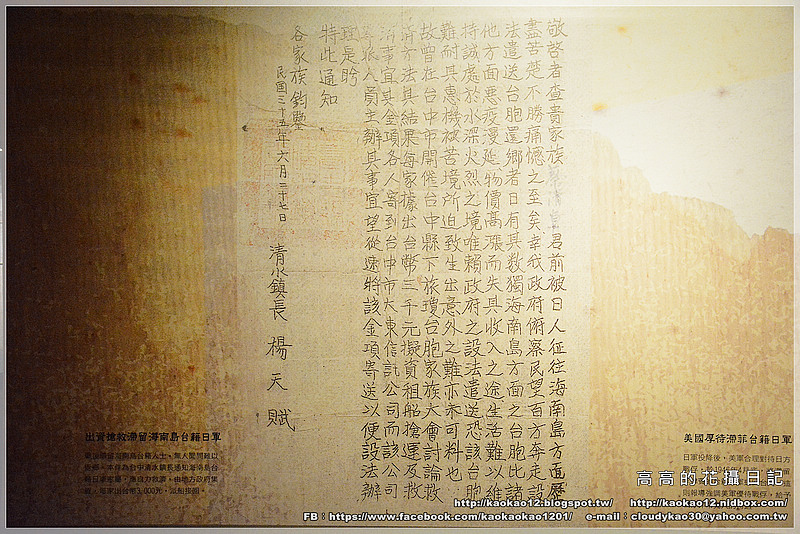 敬啓者查貴家族 君前被日人征往海南島方面歷
盡苦楚不勝痛憾之至矣幸我政府俯察民望百方奔走設
法遣送台胞還鄉者日有其數獨海南島方面之台胞比諸
他方面惡疫漫延物價高漲而失其收入之途生活難以維
持誠處於水深火烈之境唯賴政府之設法遣送恐該台胞
難耐其惠機被苦境所迫致生出意外之難亦未可料也
故曾在台中市開催台中縣下旅瓊台胞家族大會討論救
濟方法其結果每家據出台幣三千元擬資租船搶運及救
濟事宜其金項各人寄到台中市大東信託公司而該公司
寄派人員主辦其事宜望從速將該金項寄送以便設法辦
理是盼
特此通知
各家族鈞鑒
民國三十五年六月二十七日
清水鎮長 楊天賦
出資搶救滯留海南島台籍日軍
每家出台幣3,000元
美國厚待滯菲台籍日軍
日軍投降後，美軍合理對待日方
高高的花攝日記
http://kaokao12.blogspot.tw/ http://kaokao12.nidbox.com/
FB：https://www.facebook.com/kaokaokao1201/ e-mail：cloudykao30@yahoo.com.tw